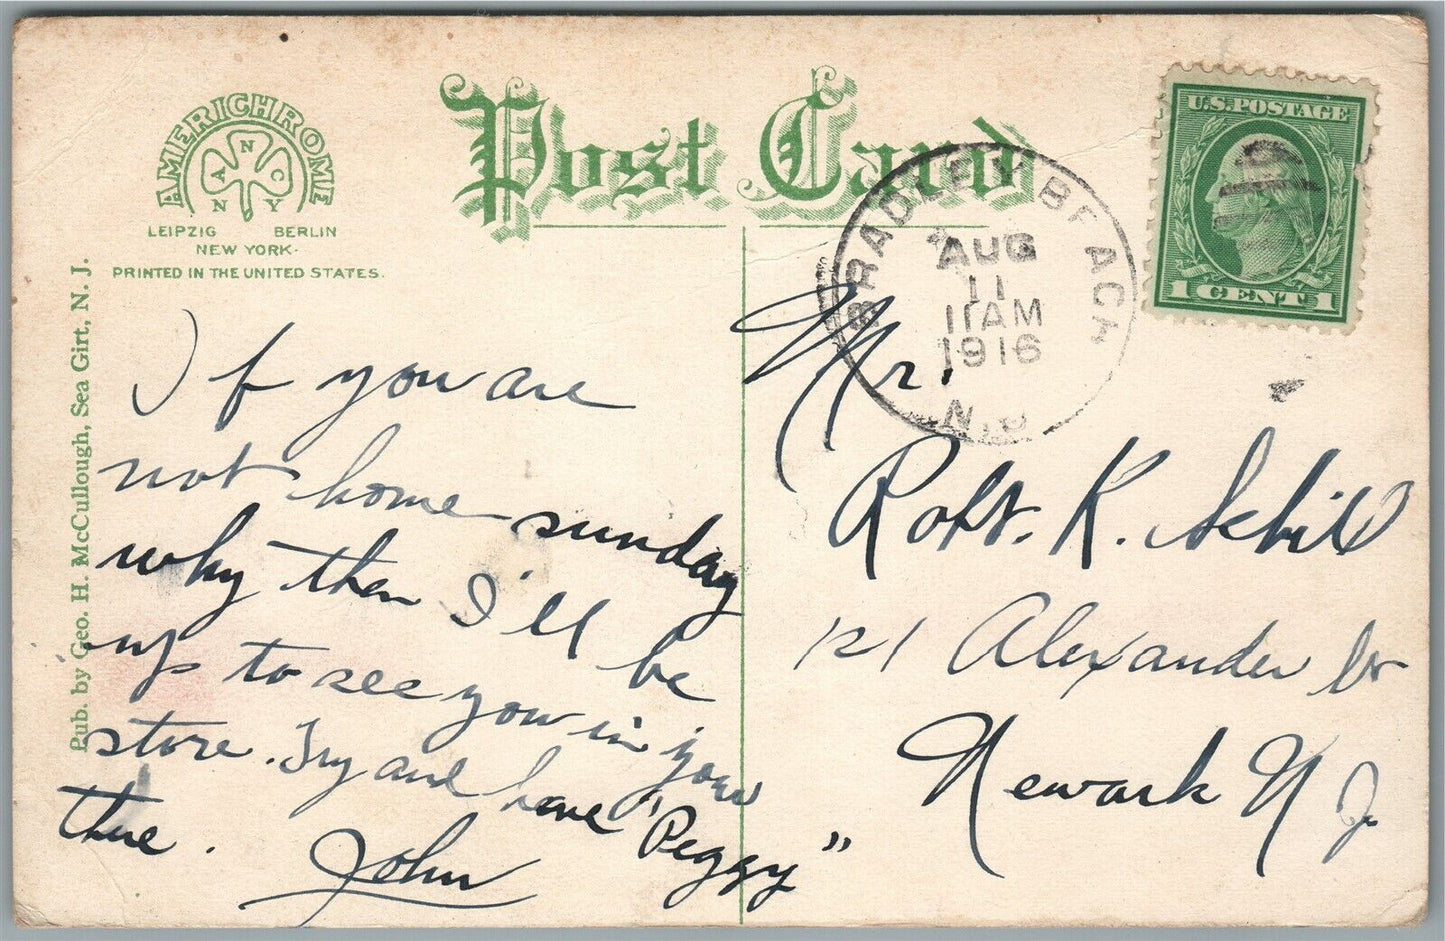 AMERICHROME
A N C
N Y
LEIPZIG BERLIN
NEW YORK.
PRINTED IN THE UNITED STATES.
Post Card
BRADLEY BEACH
AUG
11
11 AM
1916
N.J.
U.S. POSTAGE
1 CENT 1
Pub. by Geo. H. McCullough, Sea Girt, N. J.
If you are
not home sunday
why then I'll be
up to see you in your
store. Try and have "Peggy"
there.
John
Mr.
Robt. K. Schill
121 Alexander
Newark N J